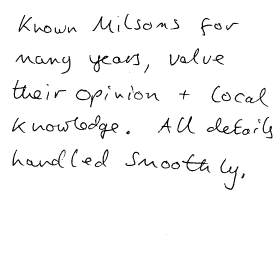 Known Milsoms for
many years, value
their opinion + local
knowledge. All details
handled smoothly.